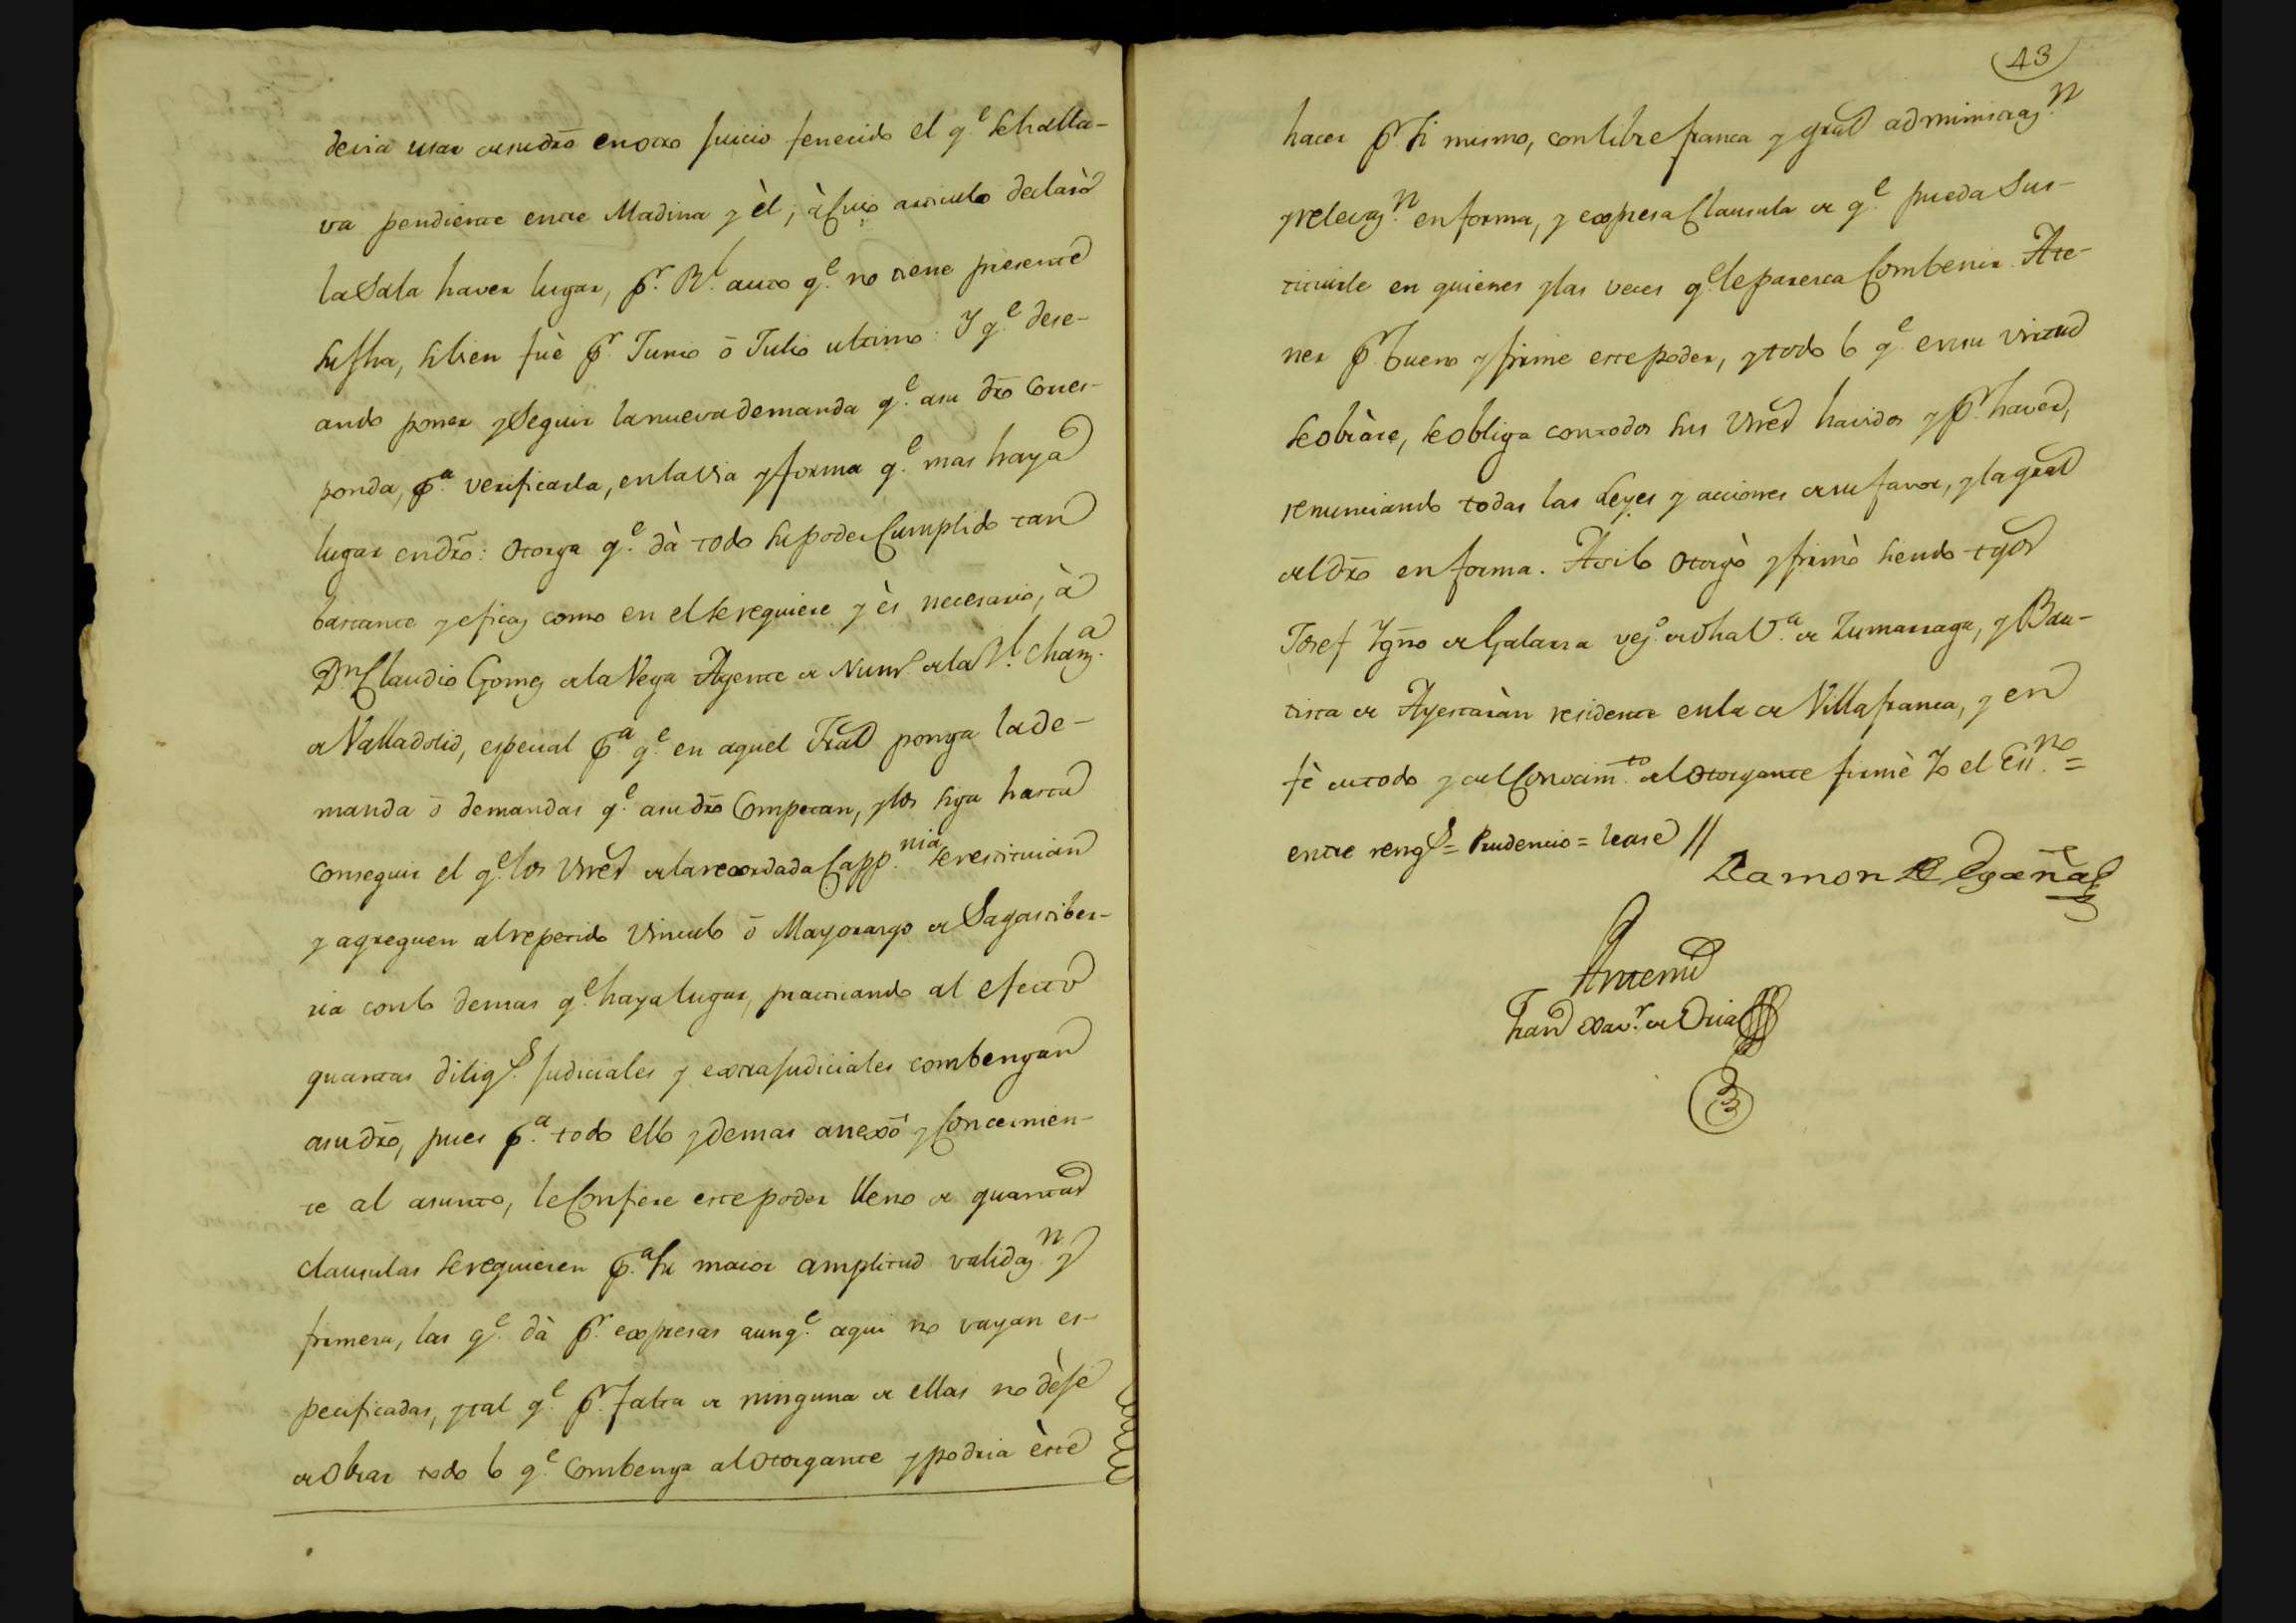 devia usar de su dro en otro Juicio fenecido el q.e se halla-
va pendiente entre Madina y èl; à Cuio articulo declarò
la Sala haver lugar, p.r R.l auto q.e no tiene presente
su fha, si bien fuè p.r Junio ô Julio ultimo: Y q.e dese-
ando poner y Seguir la nueva demanda q.e a su dro Corres-
ponda, p.a verificarla, en la via y forma q.e mas haya
lugar en dro: Otorga q.e dà todo su poder Cumplido tan
bastante y eficaz como en el se requiere y ès necesario, à
D.n Claudio Gomez de la Vega Agente de Num.o de la R.l Chanz.a
de Valladolid, especial p.a q.e en aquel Tral ponga la de-
manda ô demandas q.e a su dro Competan, y los siga hasta
Conseguir el q.e los Vnes de la recordada Capp.nia se restituian
y agreguen al repetido Vinculo ô Mayorazgo de Sagastiber-
ria con lo demas q.e haya lugar, practicando al efecto
quantas dilig.s Judiciales y extraJudiciales combengan
a su dro, pues p.a todo ello y demas anexô y Concernien-
te al asunto, le Confiere este poder lleno de quantas
clausulas se requieren p.a su maior amplitud validaz.n y
firmeza, las q.e dà p.r expresas aunq.e aqui no vayan es-
pecificadas, y tal q.e p.r falta de ninguna de ellas no dèje
de Obrar todo lo q.e Combenga al Otorgante y podria èste
43
hacer p.r si mismo, con libre franca y gral administraz.n
y relevaz.n en forma, y expresa Clausula de q.e pueda Sus-
tituirle en quienes y las veces q.e le paresca Combenir. A te-
ner p.r bueno y firme este poder, y todo lo q.e en su virtud
se obràre, se obliga con todos sus Vnes havidos y p.r haver,
renunciando todas las Leyes y acciones de su favor, y la gral
del dro en forma. Asi lo Otorgò y firmò siendo tgos
Josef Ygno de Galarza vez.o de dha V.a de Zumarraga, y Bau-
tista de Ayestaràn residente en la de Villafranca, y en
fè de todo y del Conocim.to del Otorgante firmè Yo el Ess.no =
entre reng.s = Prudencio = lease //
Ramon de Egaña
Antemi
Fran Xav.r de Oria